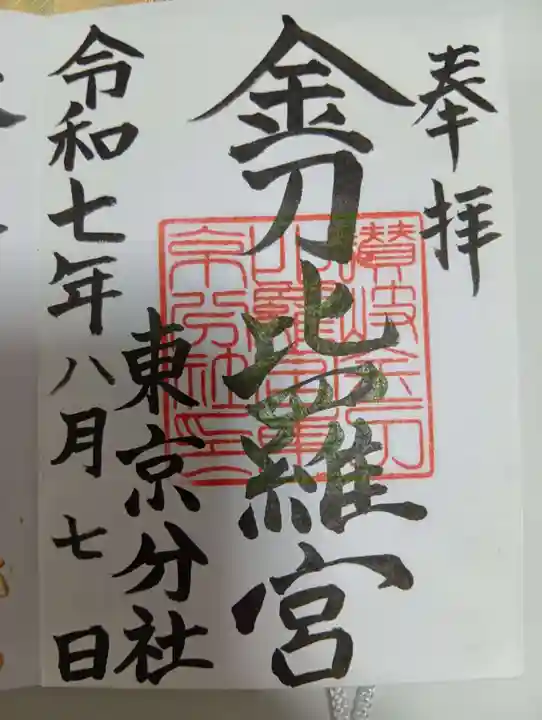 奉拝
金刀比羅宮
東京分社
令和七年八月七日
讃岐金刀
比羅宮東
京分社印